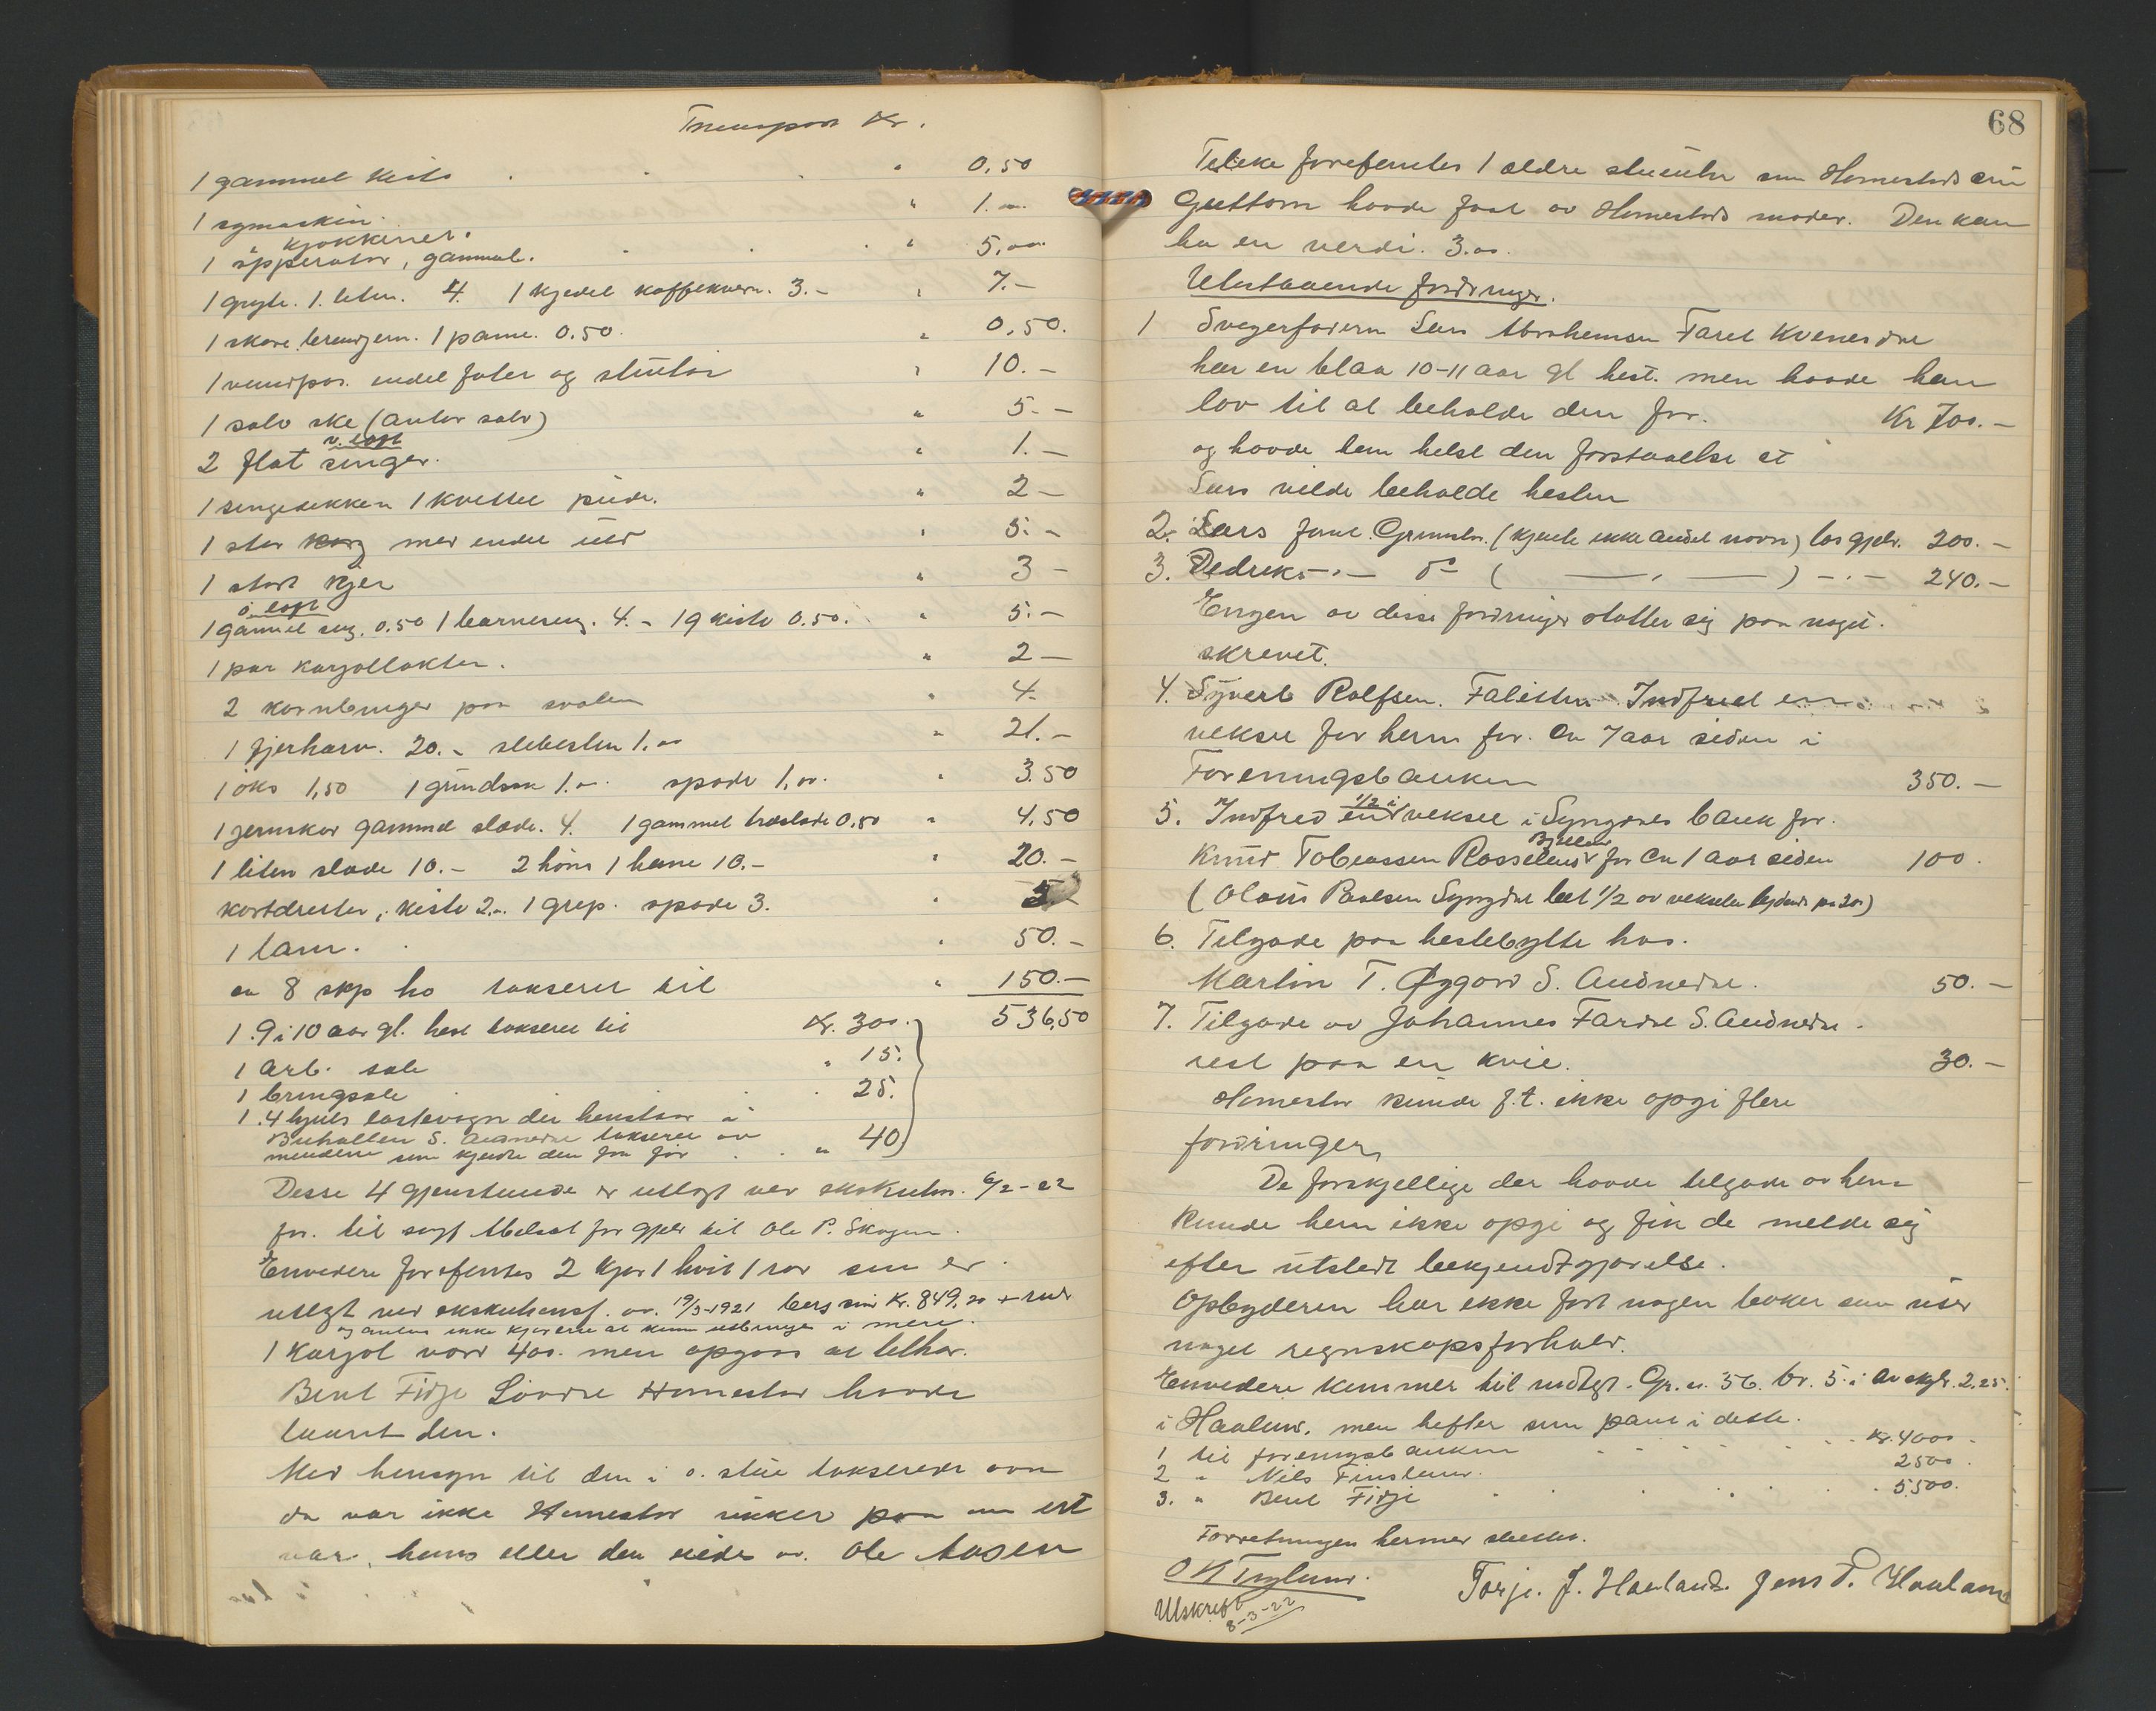 Transport Kr.
1 gammel kiste " 0,50
1 symaskin. " 1.00
i kjøkkenet.
1 sepperator, gammel. " 5,00
1 gryte. 1. liten. 4. 1 kjedel kaffekvern. 3.- " 7.-
1 skare brendjern. 1 pane. 0.50. " 0,50.
1 vendpos. endel fater og " 10.-
1 sølv ske (antar sølv) " 5.-
v. loft
2 flat senger. " 1.-
1 sengedekken 1 kvittel pude. " 2-
1 stor korg med endel uld " 5.-
1 stort kjer " 3-
ö. loft
1 gammel seng. 0.50 1 barneseng. 4.- 1 g kiste 0.50. " 5.-
1 par karjollakter. " 2-
2 kornbinger paa svalen " 4.
1 fjerharv. 20.- slebesten 1.00 " 21.-
1 øks 1,50 1 1.- spade 1,00. " 3.50
1 jernskor gammel slæde. 4. 1 gammel træslæde 0,50 " 4,50
1 liten slæde 10.- 2 höns 1 hane 10.- " 20.-
kiste 2.- 1 grep. spade 3. " 5.-
1 lam. " 50.-
ca 8 skp hø takseret til " 150.-
536,50
1. 9 à 10 aar gl. hest takseret til Kr. 300.-
1 arb. sele " 15.
1 bringsele " 25.
1. 4 hjuls lastevogn der henstaar i
S. Audnedal takseret av
mendene som kjendte den fra før " 40
Disse 4 gjenstande er utlagt ved ekskution. 6/2-22
for. til sagf. Abelset for gjeld til Ole P. Skagen.
Envidere forefantes 2 kjør 1 hvit 1 rød som er
utlagt ved ekskutionsf. av. 19/3-1921 Kr. 849,20 +
og antas ikke kjørene at kunne utbringes i mere.
1 Karjol værd 400. men opgaes at tilhør.
Bent Fidje Søvdre Homestad hadde
laant den.
Med hensyn til den i ö. stue takserede ovn
da var ikke Homestad sikker paa om det
var hans eller den eiedes av. Ole Aasen
68
Tilike forefantes 1 ældre stueuhr som Homestads søn
Guttorm havde faat av Homestads moder. Den kan
ha en verdi. 3.00.
Utestaaende fordringer.
1 Svigerfaren Lars Abrahamsen Faret Kvenesdal
har en blaa 10-11 aar gl hest. men havde han
lov til at beholde den for. Kr 700.-
og havde han helst den forstaaelse at
Lars vilde beholde hesten
2. Lars Grimstv. (kjente ikke andet navn) løs gjeld. 200.-
3. Dedrik -"- do ( —"— ) -"- 240.-
Engen av disse fordringer støtter sig paa noget.
skrevet.
4. Syvert Rolfsen. Indfriet en
veksel for ham for. ca 7 aar siden i
Foreningsbanken 350.-
5. Indfried 1/2 i en veksel i Lyngdals bank for.
Knud Tobiassen Rosseland for ca 1 aar siden 100.
(Olaus Paulsen Lyngdal bet 1/2 av vekselen lydende paa 200)
6. Tilgode paa hestebytte hos.
Martin T. Øygard S. Audnedal. 50.-
7. Tilgode av Johannes Fardal S. Audnedal.
rest paa en kvie. 30.-
Homestad kunde f.t. ikke opgi flere
fordringer
De forskjellige der havde tilgode av ham
kunde ham ikke opgi og fik de melde sig
efter utstedt bekjendtgjørelse.
Opbyderen har ikke ført nogen bøker som viser
noget regnskapsforhold.
Envidere kommer til indtægt. Gr. n. 36. br. 5. i av skyld. 2,25.
i Haaland. men hefter som pant i dette.
1 til foreningsbanken Kr. 4000.-
2 " Nils Finsland. 2500.
3. " Bent Fidje 5,500.
Forretningen hermed sluttet.
Torje. J. Haaland. Jens P. Haaland
Utskreft 8-3-22